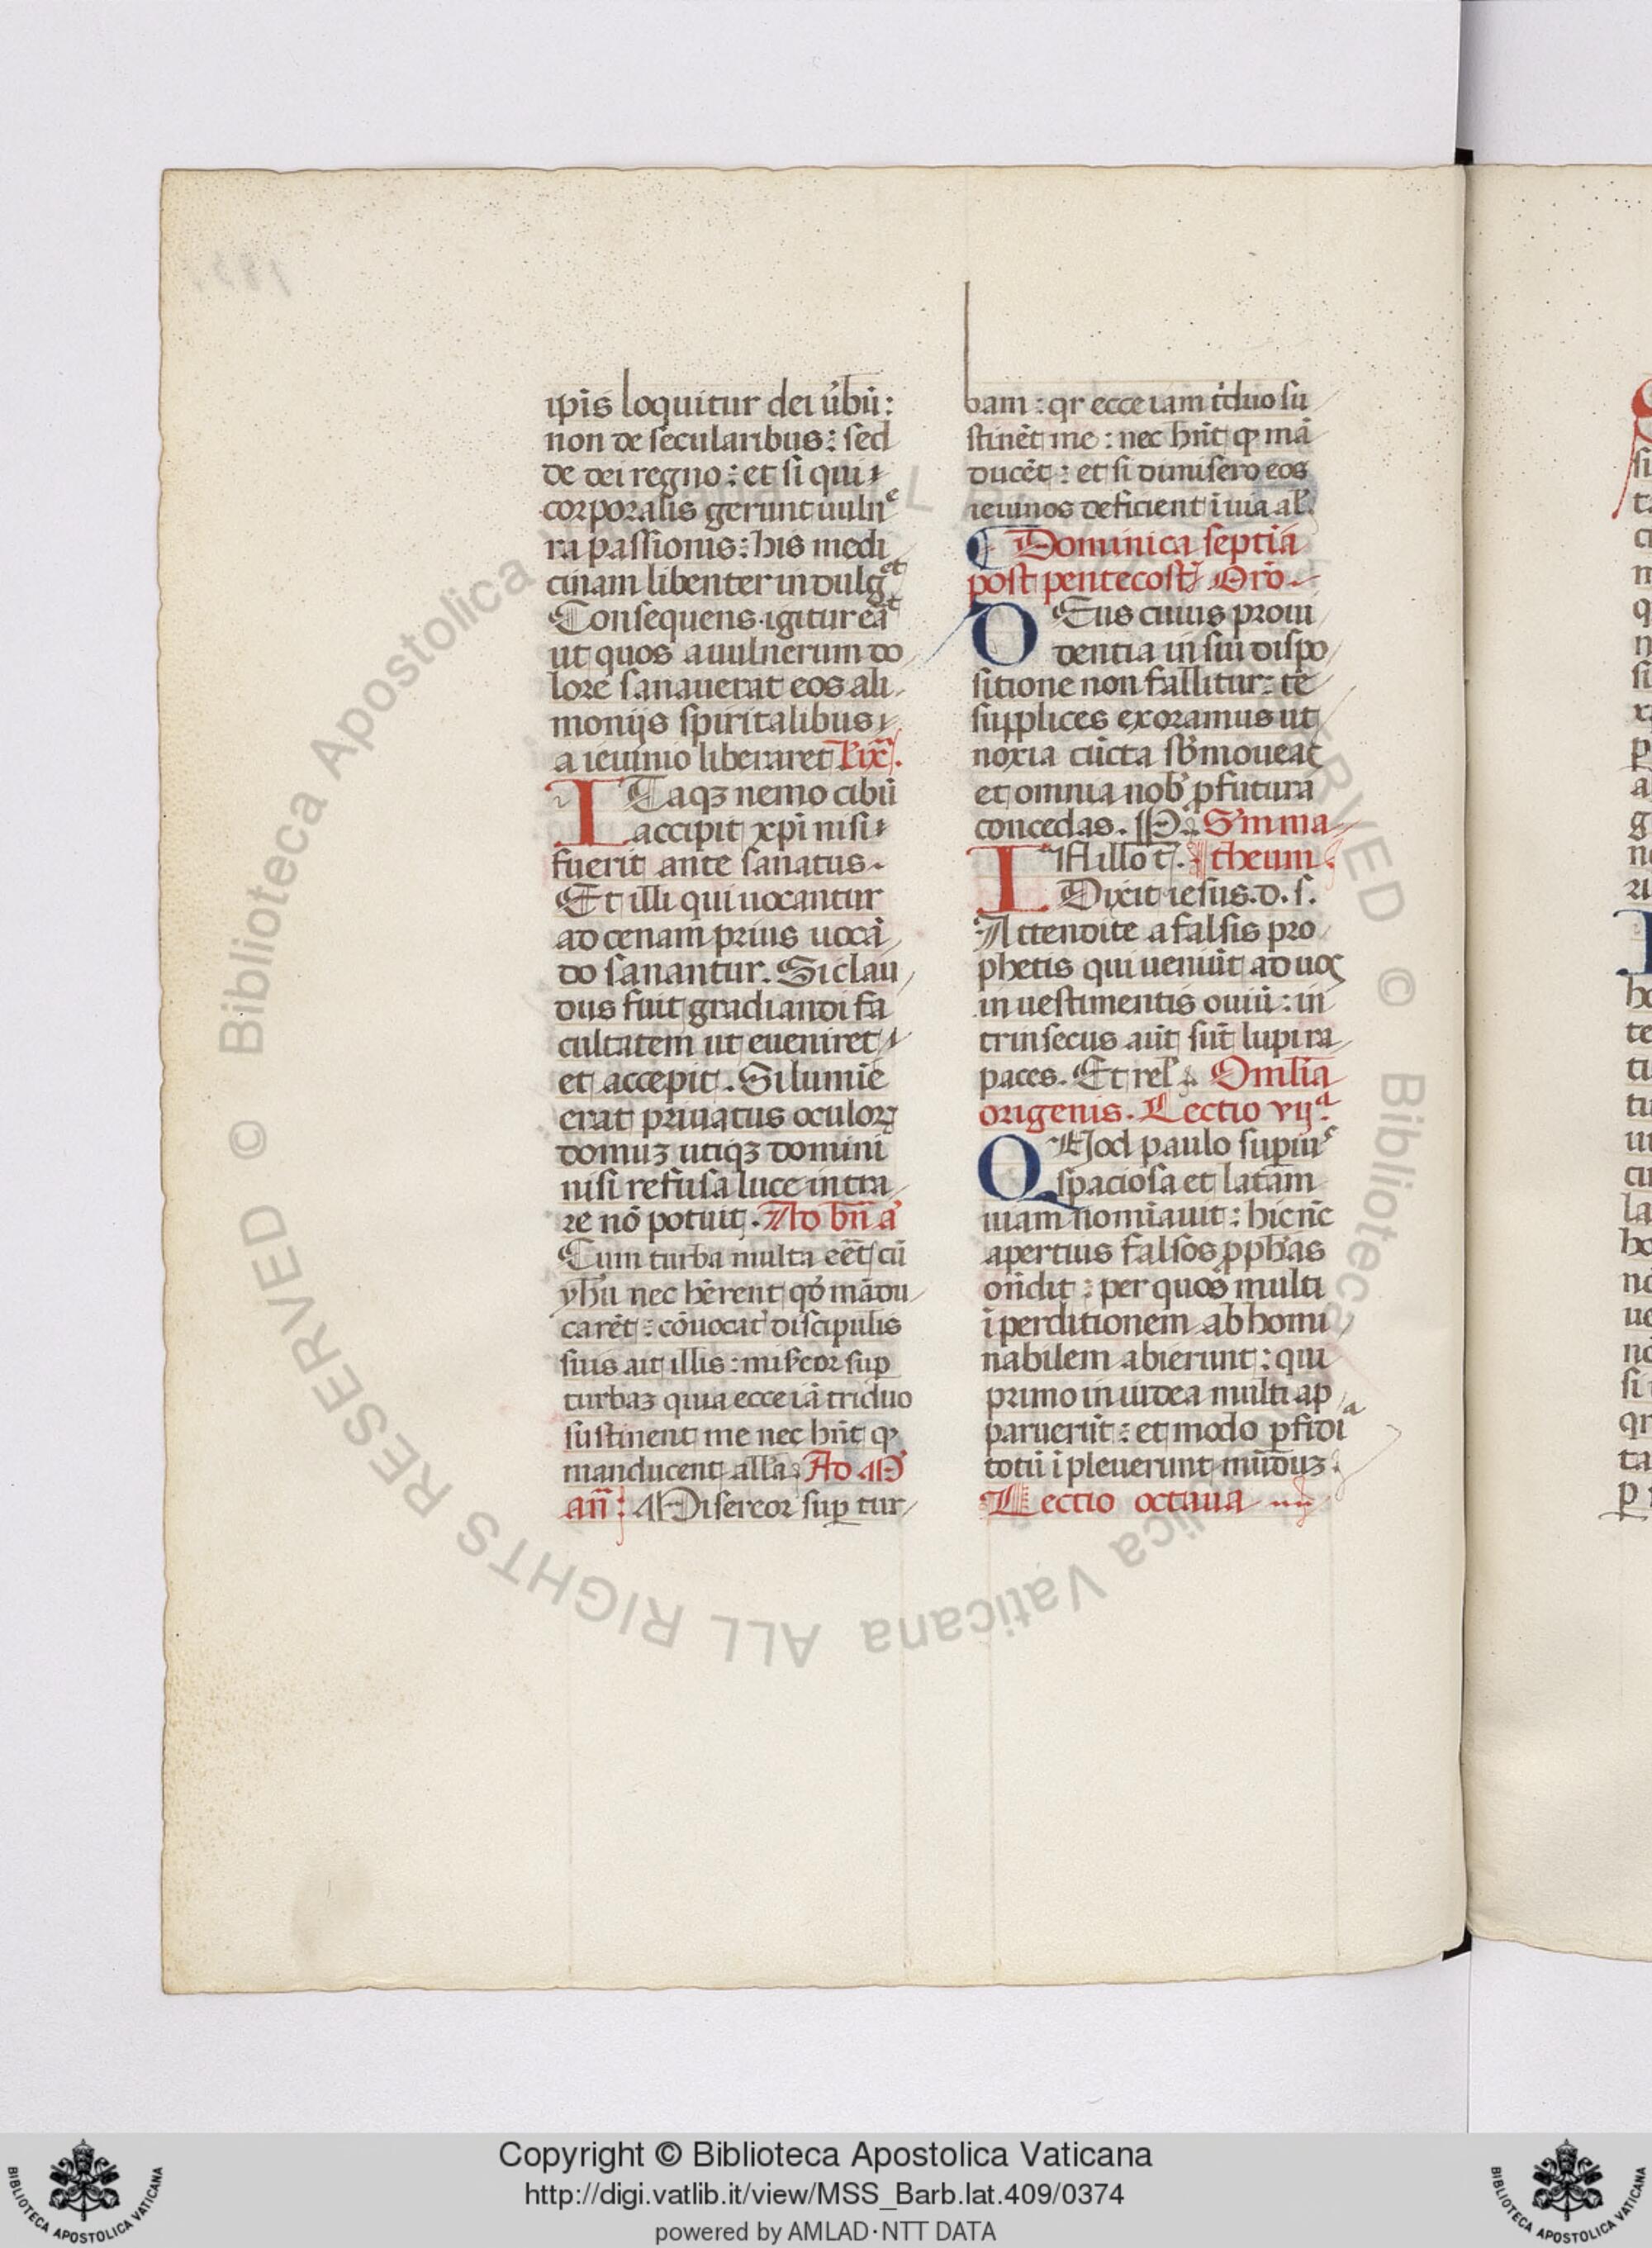 ip̄is loquitur dei u̾bū:
non de secularibus: sed
de dei regno: et si qui
corporalis gerunt uulne
ra passionis: his medi
cinam libenter indulget
Consequens igitur erat
ut quos a uulnerum do
lore sanauerat eos ali
monijs spiritalibus
a ieiunio liberaret L̄ ix̄.
ITaqꝫ nemo cibū
accipit xp̄i nisi
fuerit ante sanatus.
Et illi qui uocantur
ad cenam prius uocā
do sanantur. Si clau
dus fuit gradiandi fa
cultatem ut eueniret
et accepit. Si lumīe
erat priuatus oculoꝝ
domuꝫ utiqꝫ domini
nisi refusa luce intra
re nō potuit. Ad bn̄ a̾
Cum turba multa eēt cū
yhū nec hērent qd̾ mādu
carēt: cōuocat̾ discipulis
suis ait illis: mis̾eor sup
turbaꝫ quia ecce iā triduo
sustinent me nec hn̄t qͥ
manducent all̾a. Ad M̾
an̄: Misereor suꝑ tur
bam: qr ecce iam t̾duo su
stinēt me: nec hn̄t qͥ mā
ducēt: et si dimisero eos
ieiunos deficient ī uia al̾.
¶ Dominica septīa
post pentecost̾ Orō
DEus cuius proui
dentia in sui dispo
sitione non fallitur: te
supplices exoramus ut
noxia cūcta sb̾moueat
et omnia nob̾ ꝓfutura
concedas. P. S̾m ma
IN illo t̄. theum
Dixit iesus. d. s.
Attendite a falsis pro
phetis qui ueniūt ad uos
in uestimentis ouiū: in
trinsecus aūt sūt lupi ra
paces. Et rel̾. Omīlia
origenis. Lectio vijᵃ.
QUod paulo suꝑius
spaciosa et latam
uiam nomīauit: hic nc̄
apertius falsos ꝓph̾as
on̄dit: per quos multi
ī perditionem abhomi
nabilem abierunt: qui
primo in iudea multi ap
paruerūt: et modo ꝑfidia
totū ī pleuerunt mūduꝫ.
Lectio octaua
Copyright © Biblioteca Apostolica Vaticana
http://digi.vatlib.it/view/MSS_Barb.lat.409/0374
powered by AMLAD·NTT DATA
BIBLIOTECA APOSTOLICA VATICANA
BIBLIOTECA APOSTOLICA VATICANA
© Biblioteca Apostolica Vaticana ALL RIGHTS RESERVED
© Biblioteca Apostolica Vaticana ALL RIGHTS RESERVED